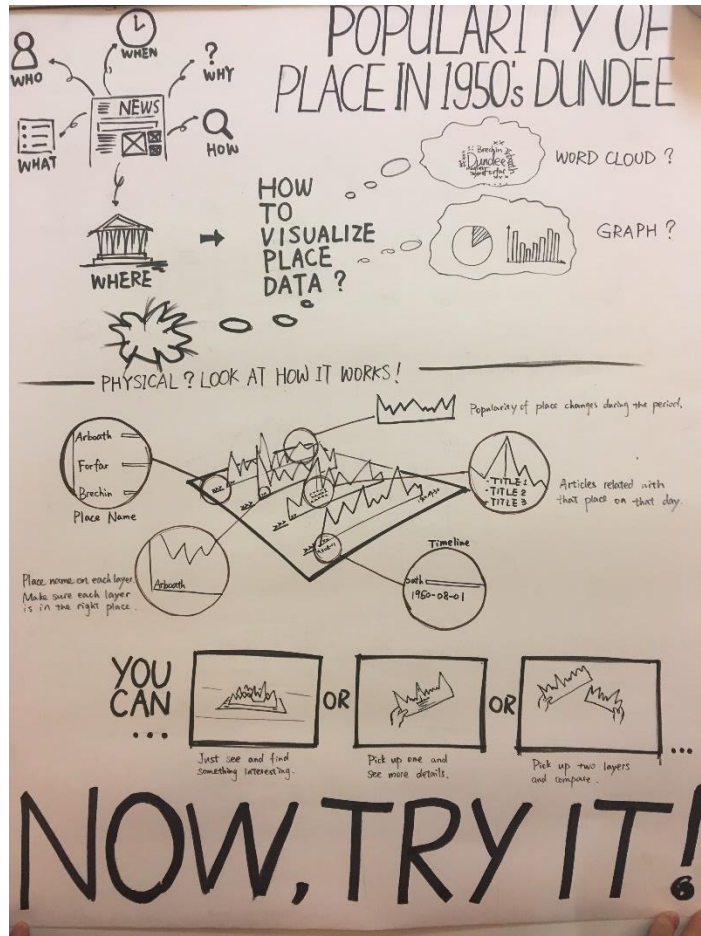 POPULARITY OF
PLACE IN 1950's DUNDEE
WHO
WHEN
? WHY
NEWS
WHAT
HOW
WHERE
HOW
TO
VISUALIZE
PLACE
DATA ?
Brechin
Dundee
Forfar
WORD CLOUD ?
GRAPH ?
PHYSICAL ? LOOK AT HOW IT WORKS !
Popularity of place changes during the period.
Arboath
Forfar
Brechin
Place Name
-TITLE 1
-TITLE 2
-TITLE 3
Articles related with
that place on that day.
Place name on each layer.
Make sure each layer
is in the right place.
Arboath
Timeline
oath
1950-08-01
YOU
CAN
...
OR
OR
...
Just see and find
something interesting.
Pick up one and
see more details.
Pick up two layers
and compare.
NOW, TRY IT!
6